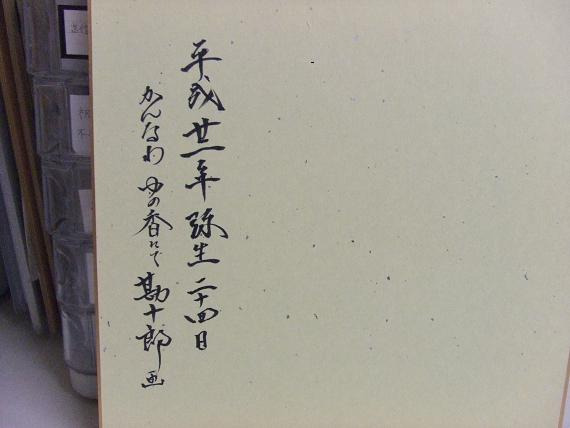 平成廿一年 弥生 二十四日
かんなわ ゆの香にて 勘十郎 画